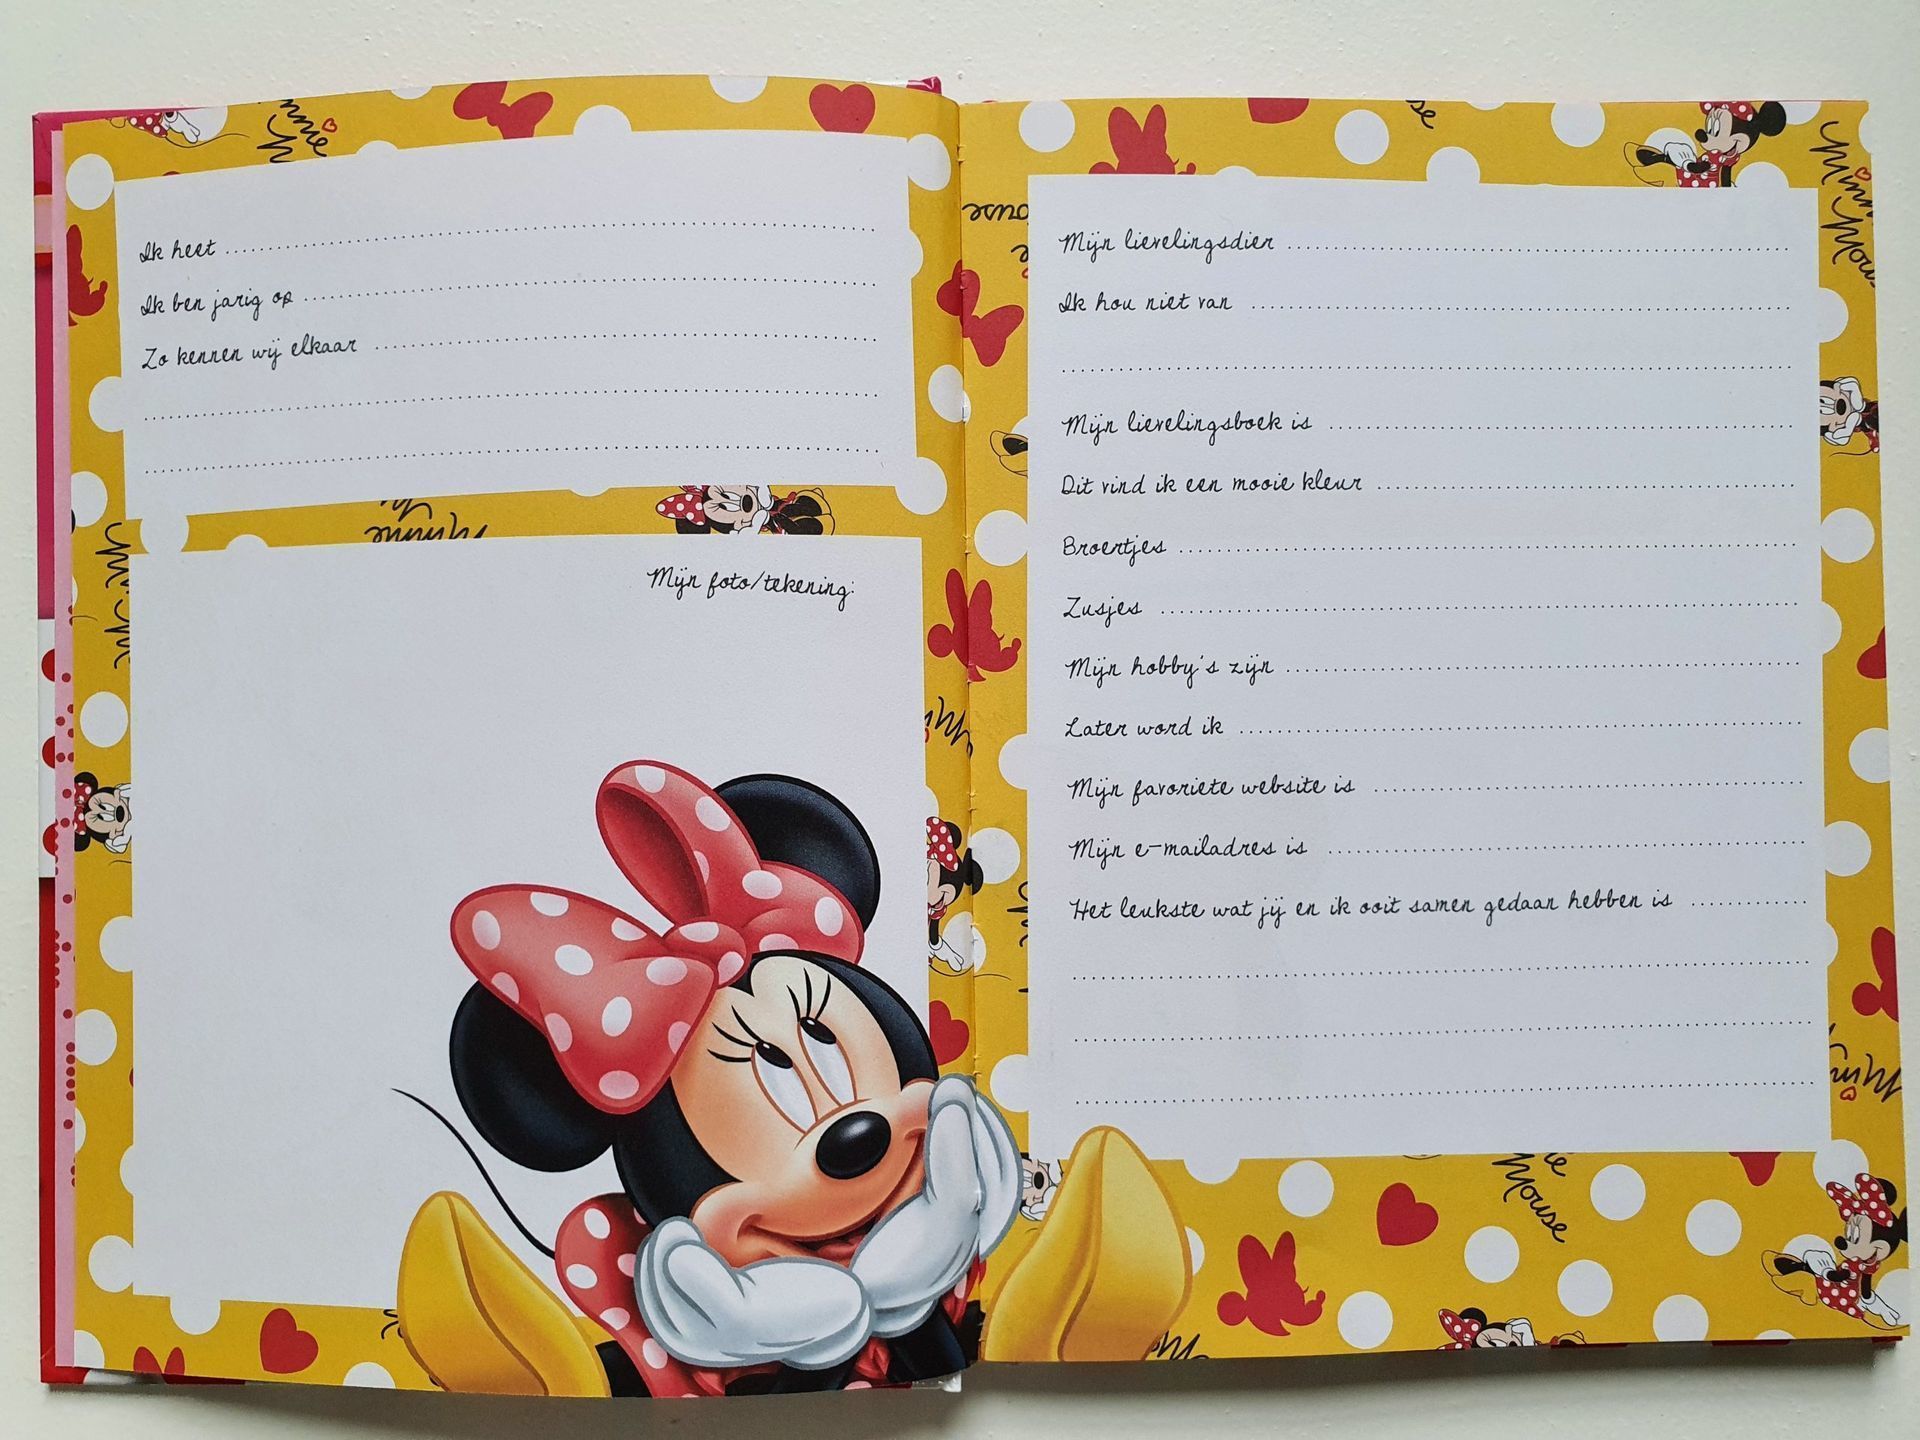 Ik heet
Ik ben jarig op
Zo kennen wij elkaar
Mijn foto/tekening:
Mijn lievelingsdier
Ik hou niet van
Mijn lievelingsboek is
Dit vind ik een mooie kleur
Broertjes
Zusjes
Mijn hobby's zijn
Later word ik
Mijn favoriete website is
Mijn e-mailadres is
Het leukste wat jij en ik ooit samen gedaan hebben is
Minnie
Mouse